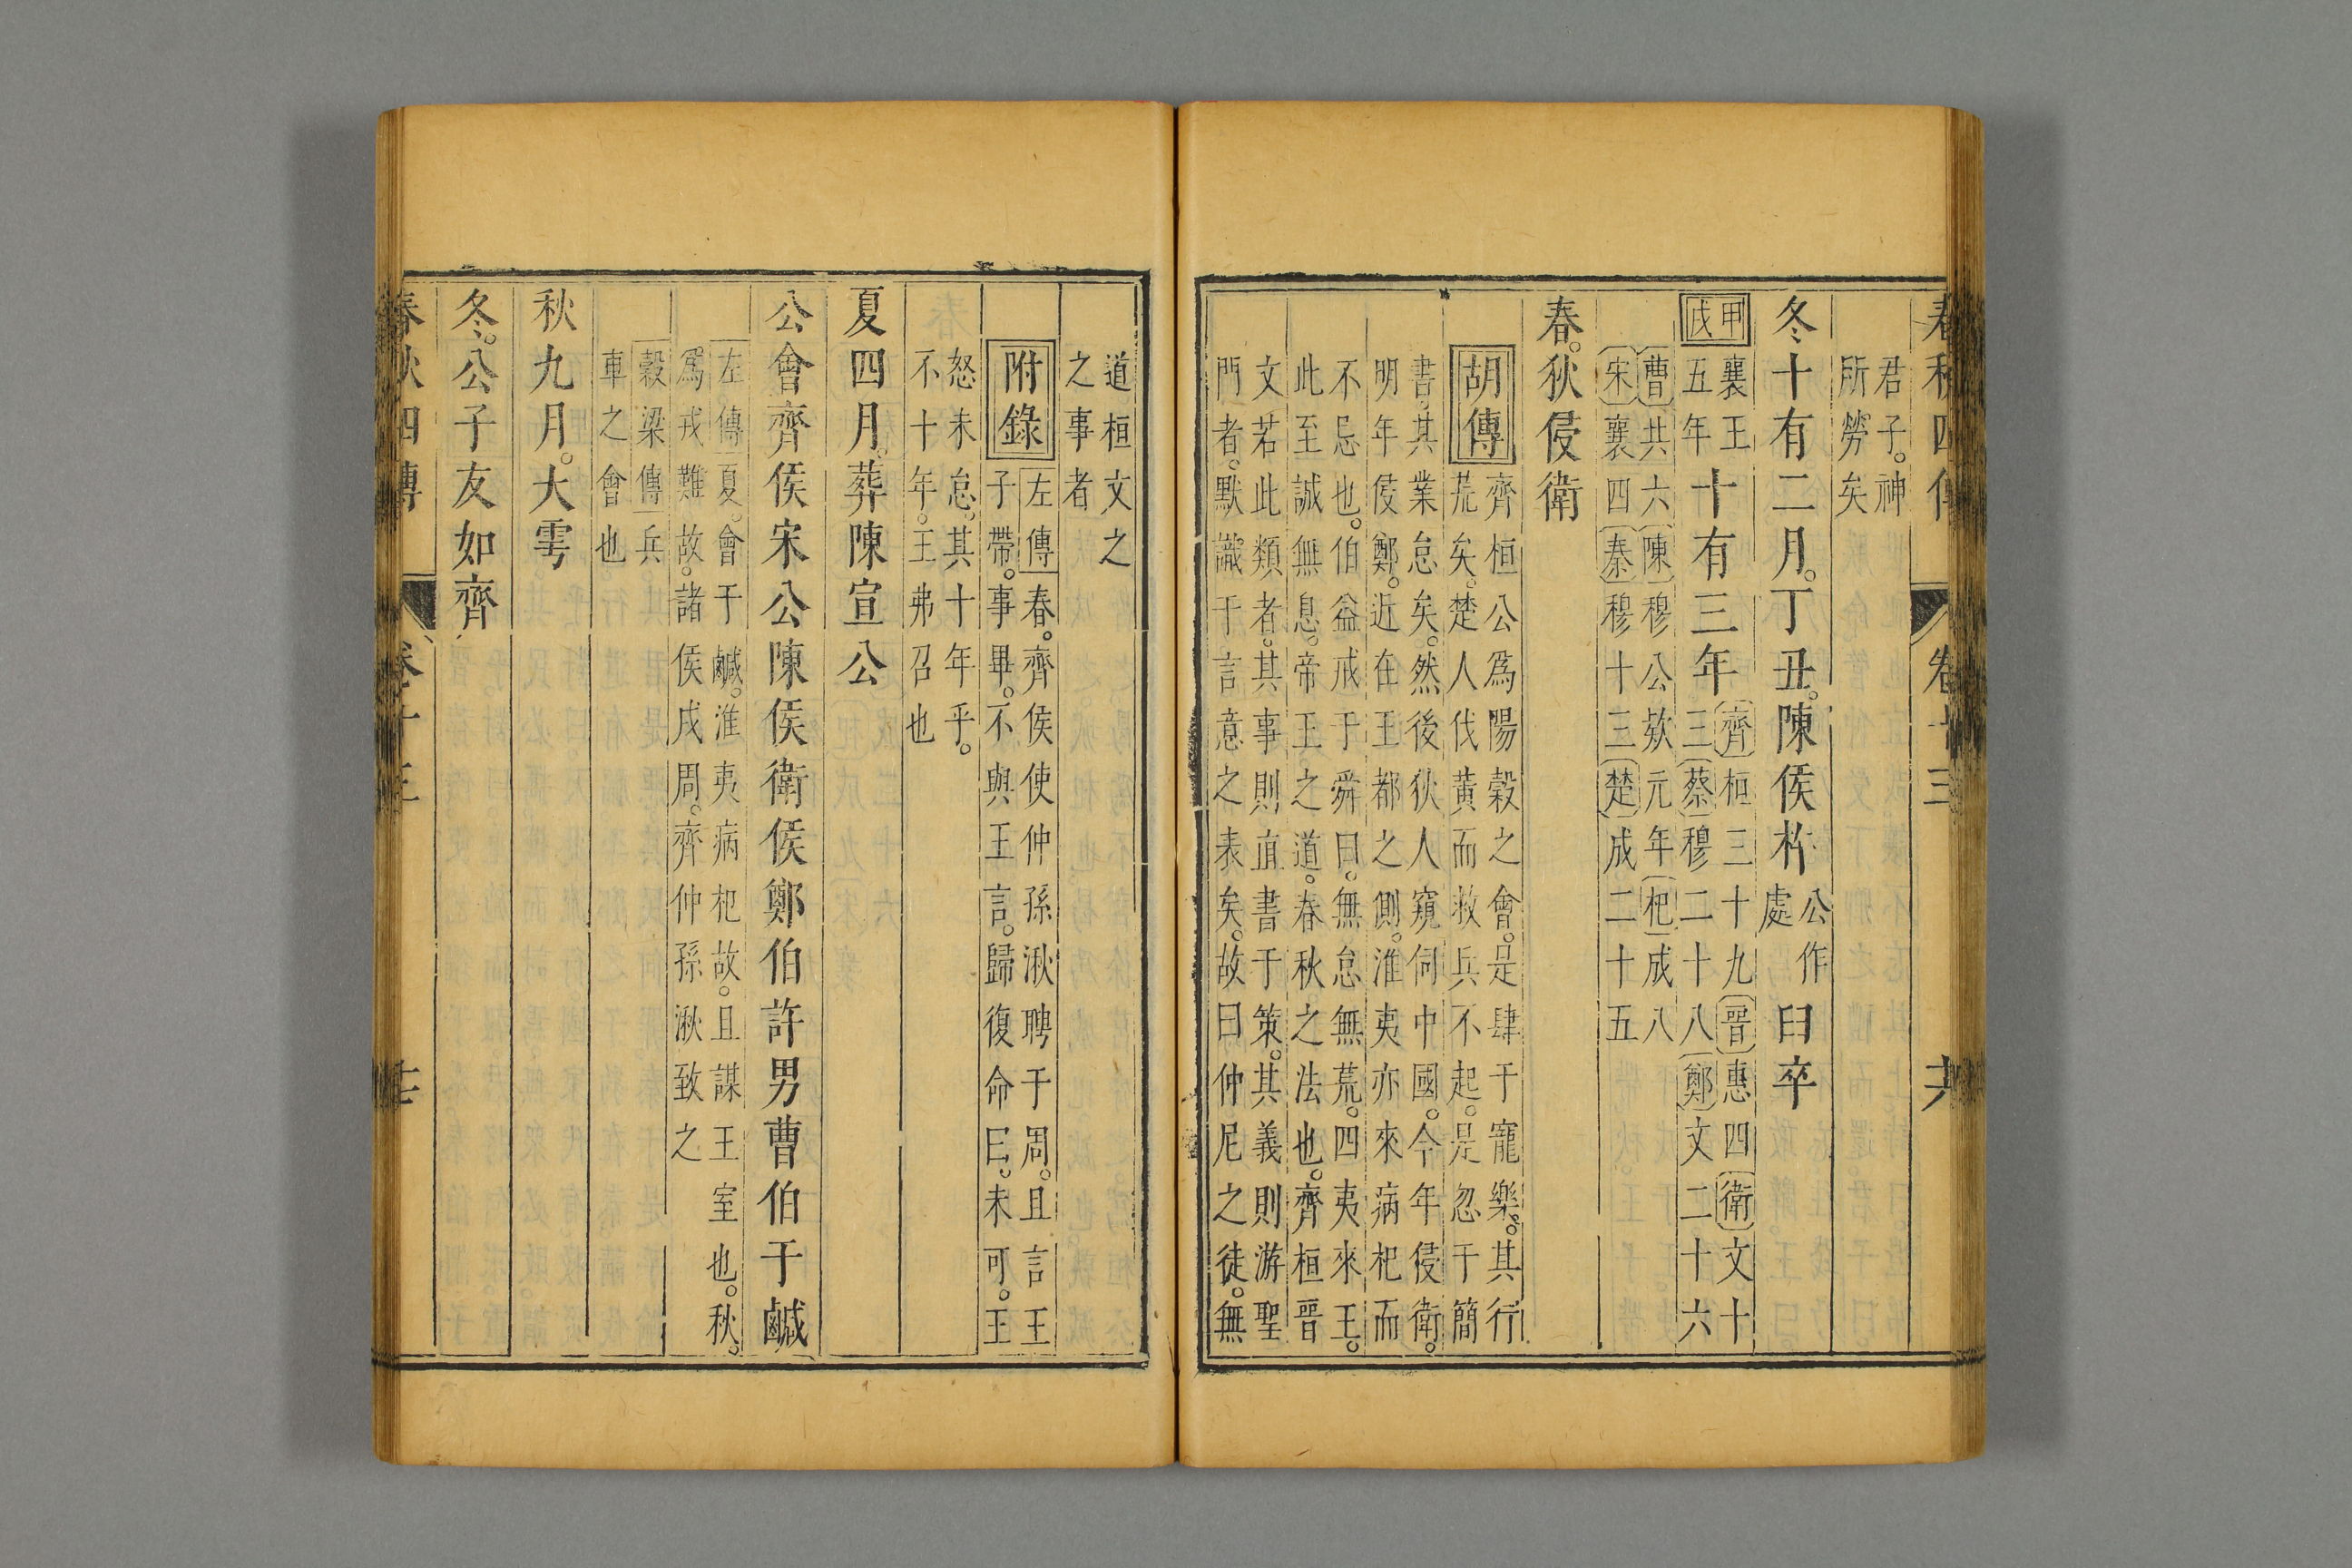 春秋四傳 卷十三
君子。神
所勞矣
冬十有二月。丁丑。陳侯杵公作處臼卒
甲戌襄王五年十有三年齊桓三十九晉惠四衛文十
三蔡穆二十八鄭文二十六
曹共六陳穆公欵元年杞成八
宋襄四秦穆十三楚成二十五
春。狄侵衛
胡傳齊桓公爲陽穀之會。是肆于寵樂。其行
荒矣。楚人伐黃而救兵不起。是忽于簡
書。其業怠矣。然後狄人窺伺中國。今年侵衛。
明年侵鄭。近在王都之側。淮夷亦來病杞而
不忌也。伯益戒于舜曰。無怠無荒。四夷來王。
此至誠無息。帝王之道。春秋之法也。齊桓晉
文若此類者。其事則直書于策。其義則游聖
門者。默識于言意之表矣。故曰仲尼之徒。無
道桓文之
之事者
附錄左傳春。齊侯使仲孫湫聘于周。且言王
子帶。事畢。不與王言。歸復命曰。未可。王
怒未怠。其十年乎。
不十年。王弗召也
夏四月。葬陳宣公
公會齊侯宋公陳侯衛侯鄭伯許男曹伯于鹹
左傳夏。會于鹹。淮夷病杞故。且謀王室也。秋。
爲戎難故。諸侯戍周。齊仲孫湫致之
穀梁傳兵
車之會也
秋九月。大雩
冬。公子友如齊
春秋四傳 卷十三